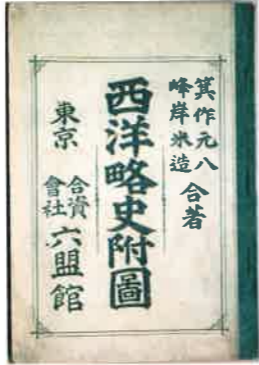 箕作元八
峰岸米造
合著
西洋略史附圖
東京
合資
會社
六盟館